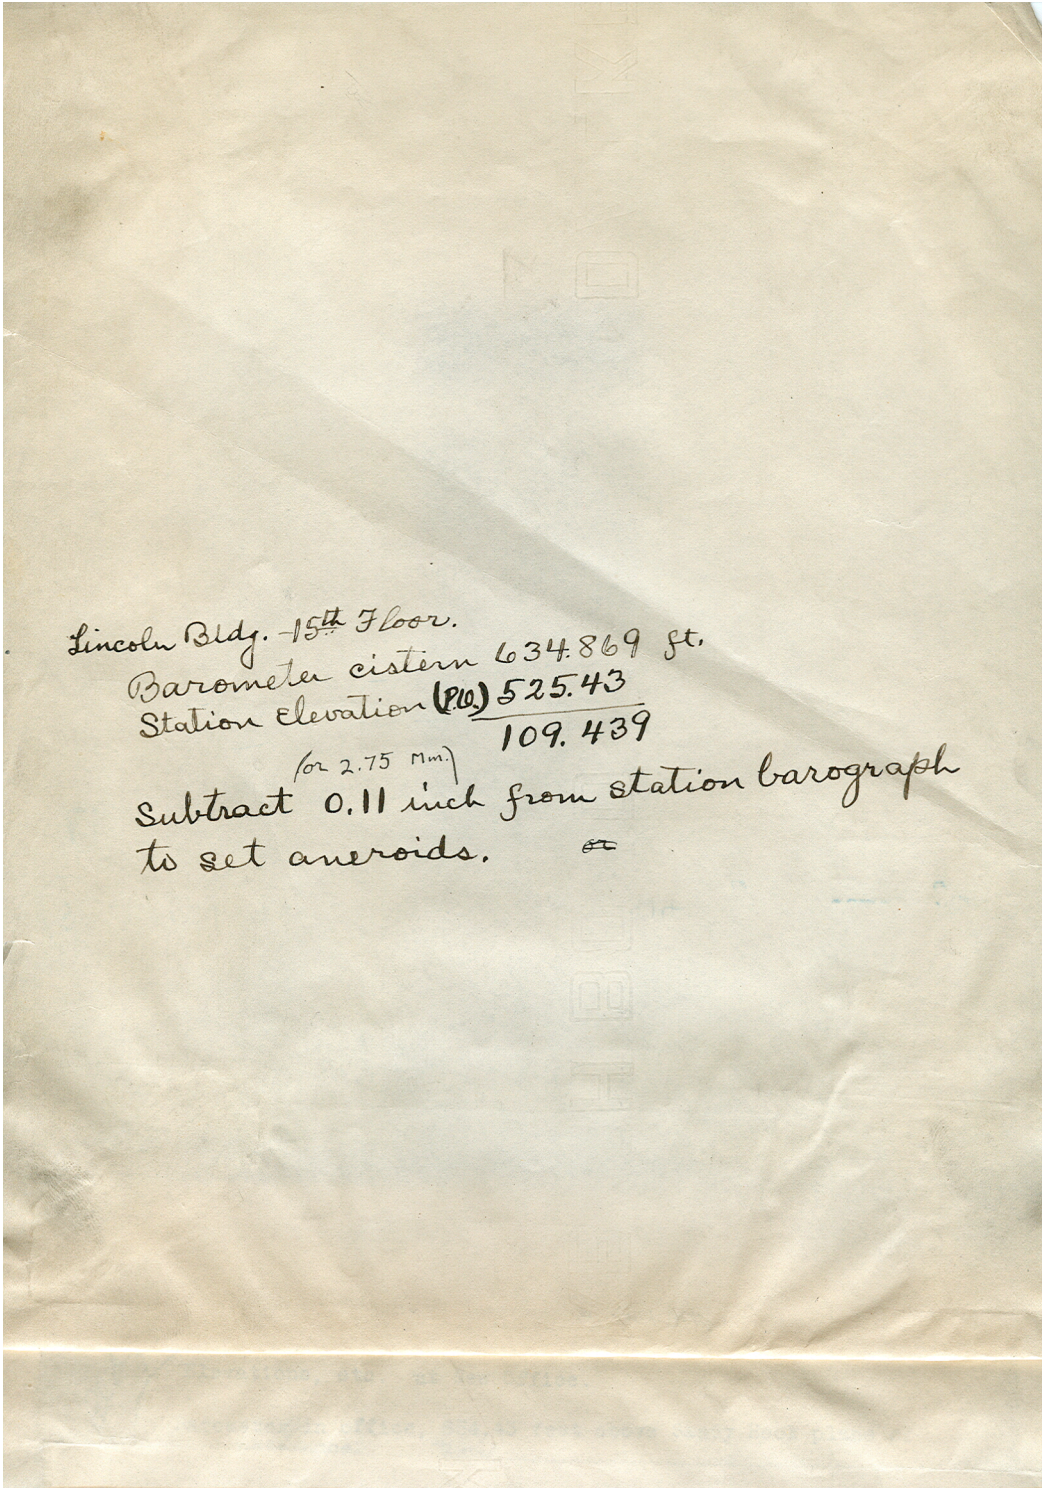 Lincoln Bldg. 15th Floor.
Barometer cistern 634.869 ft.
Station Elevation (P.O.) 525.43
109.439
(or 2.75 Mm.)
Subtract 0.11 inch from station barograph
to set aneroids. or